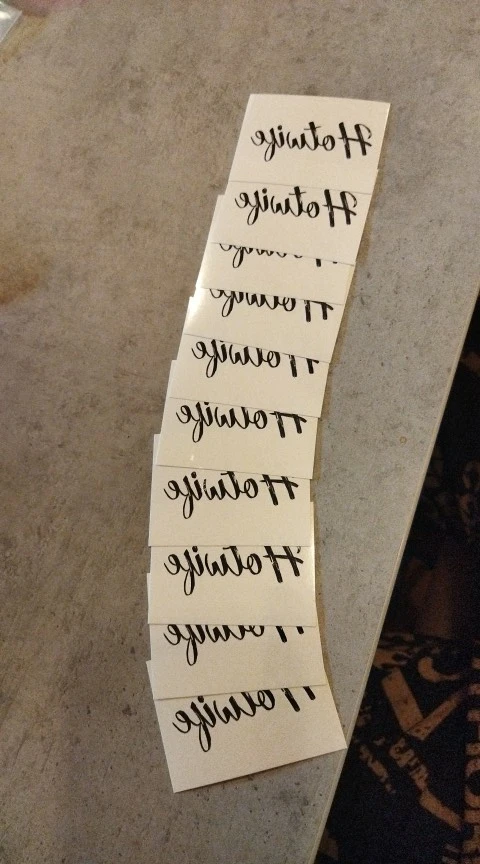 Hotwife
Hotwife
Hotwife
Hotwife
Hotwife
Hotwife
Hotwife
Hotwife
Hotwife
Hotwife